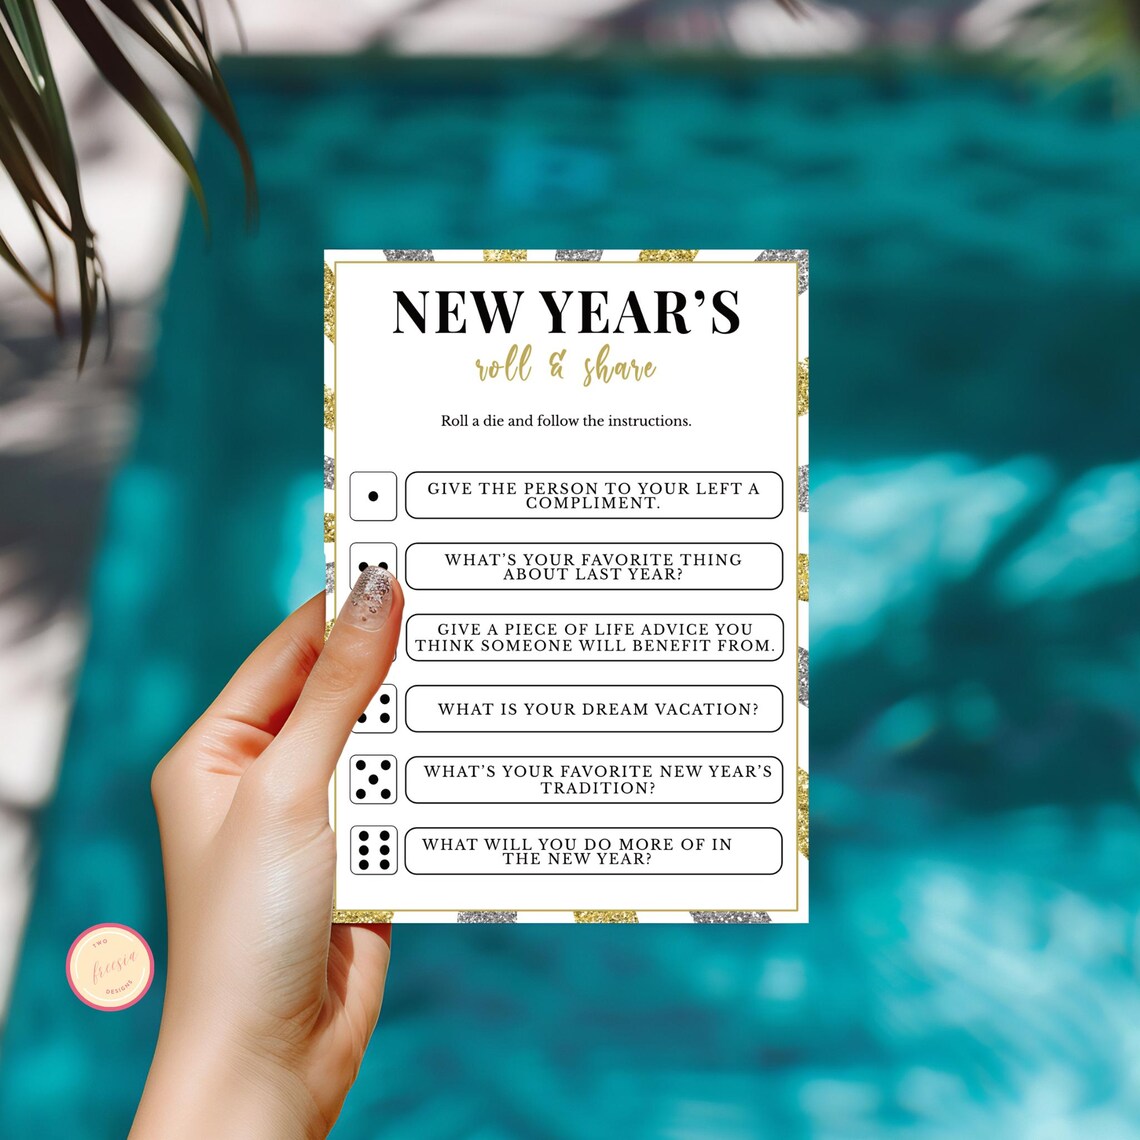 NEW YEAR'S
roll & share
Roll a die and follow the instructions.
GIVE THE PERSON TO YOUR LEFT A
COMPLIMENT.
WHAT'S YOUR FAVORITE THING
ABOUT LAST YEAR?
GIVE A PIECE OF LIFE ADVICE YOU
THINK SOMEONE WILL BENEFIT FROM.
WHAT IS YOUR DREAM VACATION?
WHAT'S YOUR FAVORITE NEW YEAR'S
TRADITION?
WHAT WILL YOU DO MORE OF IN
THE NEW YEAR?
TWO
freesia
DESIGNS